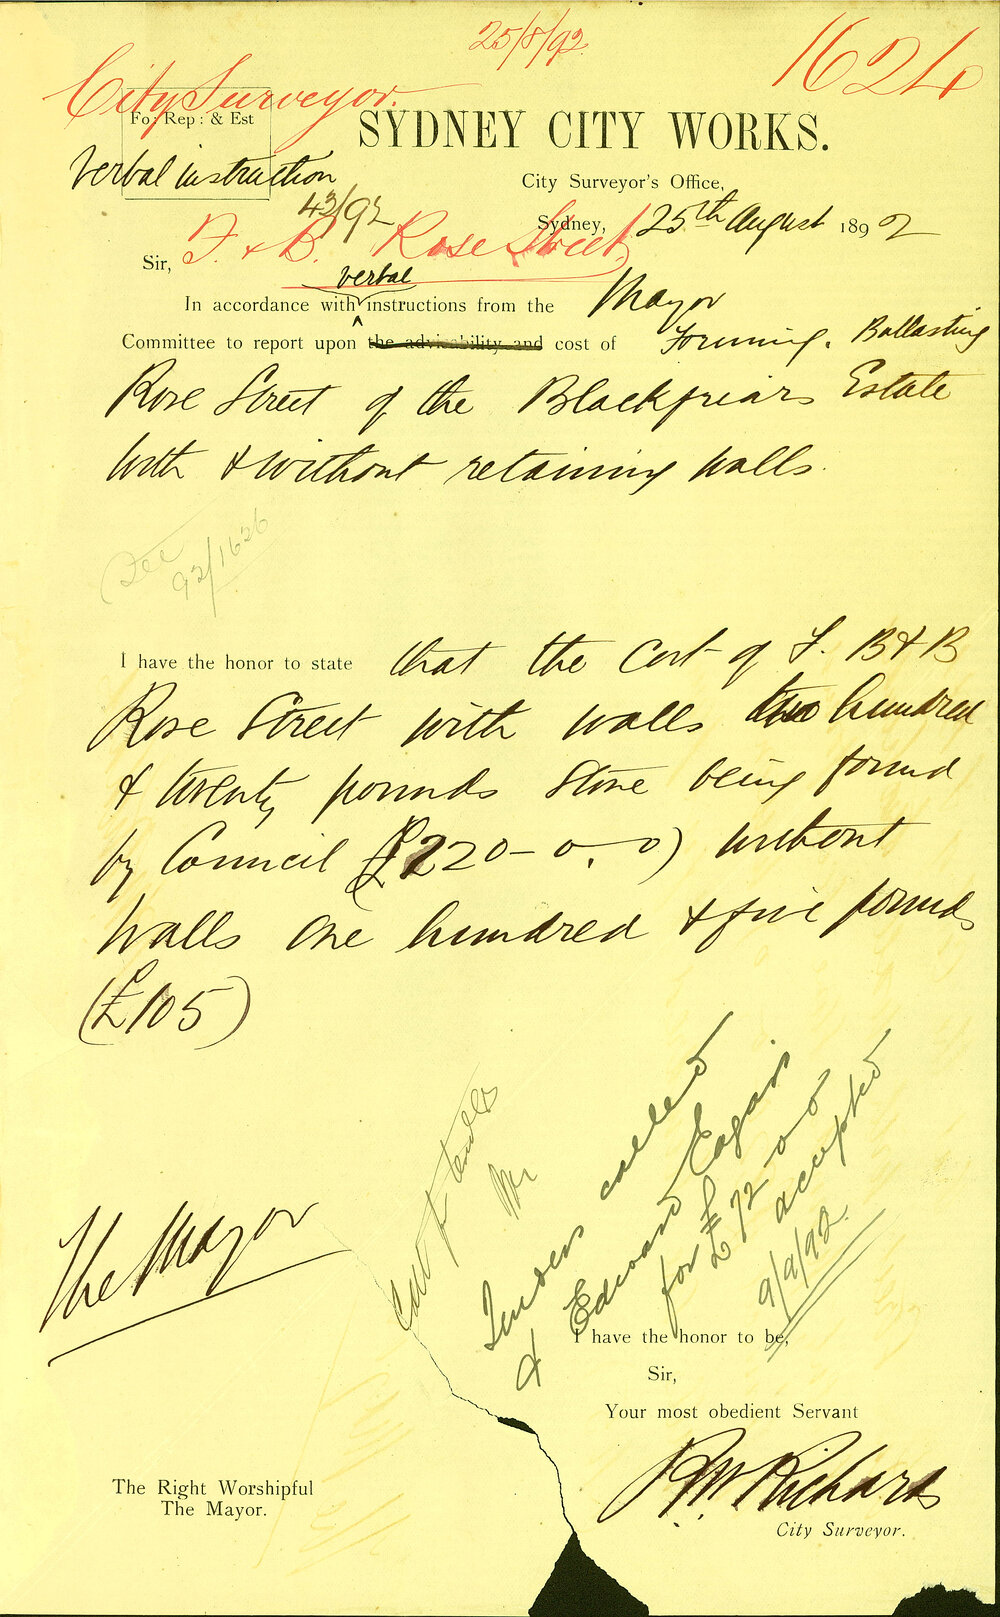 25/8/92
1624
City Surveyor.
Fo: Rep: & Est
SYDNEY CITY WORKS.
Verbal instruction
City Surveyor's Office,
43/92
Sydney, 25th August 1892
Sir, F. & B. Rose Street
verbal
In accordance with instructions from the Mayor
Committee to report upon the advisability and cost of Forming, Ballasting
Rose Street of the Blackfriars Estate
with & without retaining walls.
See
92/1626
I have the honor to state that the cost of F. B & B
Rose Street with walls two hundred
& twenty pounds stone being found
by Council (£220-0.-0) without
walls one hundred & five pounds
(£105)
Call for tenders
Tenders called
& Edward Eagan's
for £72-0-0
accepted
9/9/92
The Mayor
I have the honor to be,
Sir,
Your most obedient Servant
RW Richards
City Surveyor.
The Right Worshipful
The Mayor.